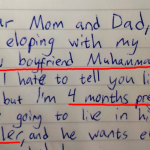 ar Mom and Dad,
eloping with my
boyfriend Muhamma
hate to tell you li
but I'm 4 months pre
going to live in hi
ler, and he wants e